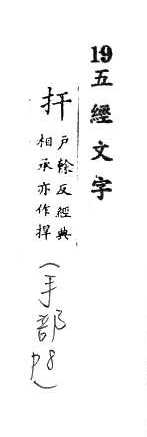 19五經文字
扞
戶幹反經典
相承亦作捍
(手部P8)